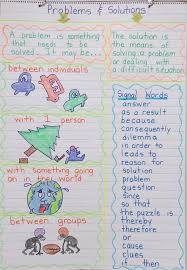 Problems & Solutions
A problem is something
that needs to be
solved. It may be...
between individuals
with 1 person
with something going
on in the world
between groups
The solution is
the means of
solving a problem
or dealing with
a difficult situation.
Signal Words
answer
as a result
because
consequently
dilemma
in order to
leads to
reason for
solution
problem
question
since
so that
the puzzle is
thereby
therefore
or
cause
clues
if... then